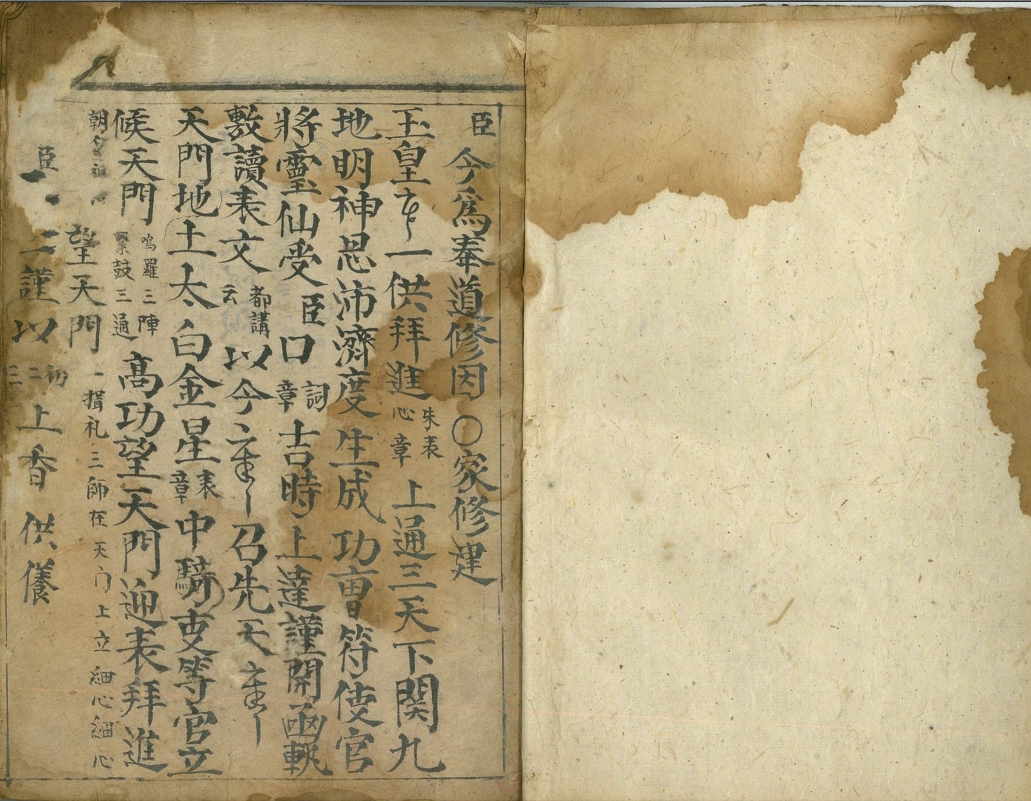 臣今為奉道修因〇家修建
玉皇一供拜進朱表心章上通三天下関九
地明神恩沛濟度生成功曹符使官
將靈仙受臣口詞章吉時上達謹開函軓
敷讀表文都講云以今召先天
天門地土太白金星表章中騎吏等官立
候天門鳴羅三陣擊鼓三通高功望天門迎表拜進
朝望天門一揖礼三師在天门上立細心細心
臣謹以初二三上香供儀